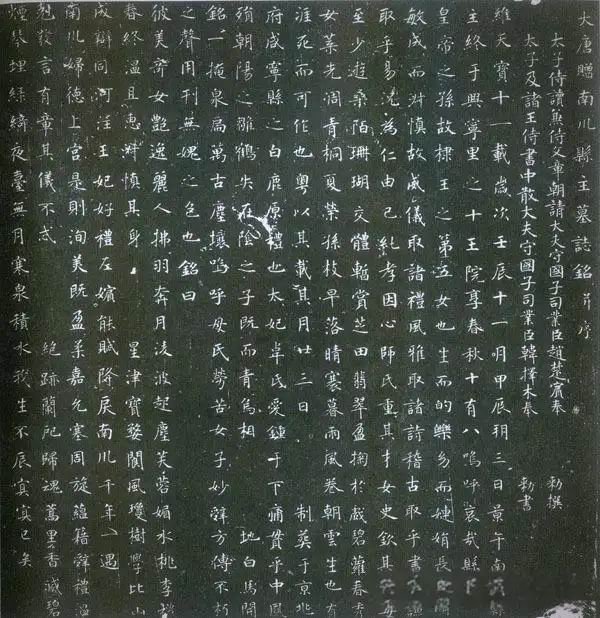 大唐贈南川縣主墓誌銘并序
太子侍讀兼侍文章朝請大夫守國子司業臣趙楚賓奉 勅撰
太子及諸王侍書中散大夫守國子司業臣韓擇木奉 勅書
維天寶十一載歲次壬辰十一月甲辰朔三日景午南川縣
主終于興寧里之十王院享春秋十有八嗚呼哀哉縣
皇帝之孫故棣王之第五女也生而的皪幼而婕娟長
敏成而淑慎故威儀取諸禮風雅取諸詩稽古取乎書謙
取乎易況為仁由己純孝因心師氏重其才女史欽其
至少遊桑陌珊瑚交體輜賞芝田翡翠盈掬於戲碧蘿春秀
女華光凋青桐夏榮孫枝早落晴褰暮雨風卷朝雲生也有
涯死而可作也粵以其載其月廿三日 制葬于京兆
府咸寧縣之白鹿原禮也太妃卓氏愛鍾于下痛貫乎中鳳
殞朝陽之雛鶴失在陰之子既而青烏相 地白馬開
銘一掩泉扃萬古塵壤嗚呼母氏勞苦女子妙辭方傳不朽
之聲用刊無媿之色也銘曰
彼美齊女艷逸麗人拂羽奔月淩波起塵芙蓉媚水桃李
春終溫且惠淑慎其身 星津寶婺閬風瓊樹學比山
成辯同河注王妃好禮左嬪能賦降戾南川千年一遇
南川婦德上宮是則洵美既盈柔嘉允塞周旋蘊藉辭禮溫
克發言有章其儀不忒 絕跡蘭阤歸魂蒿里香滅碧
煙琴埋綠綺夜臺無月寒泉積水我生不辰寘寘已矣